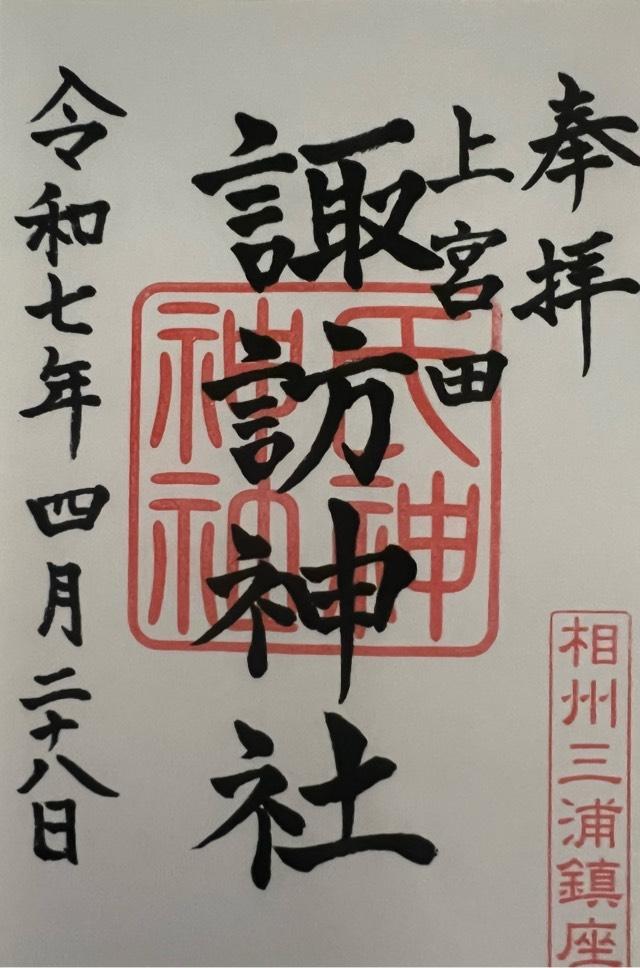 奉拝
上宮田
諏訪神社
令和七年四月二十八日
相州三浦鎮座